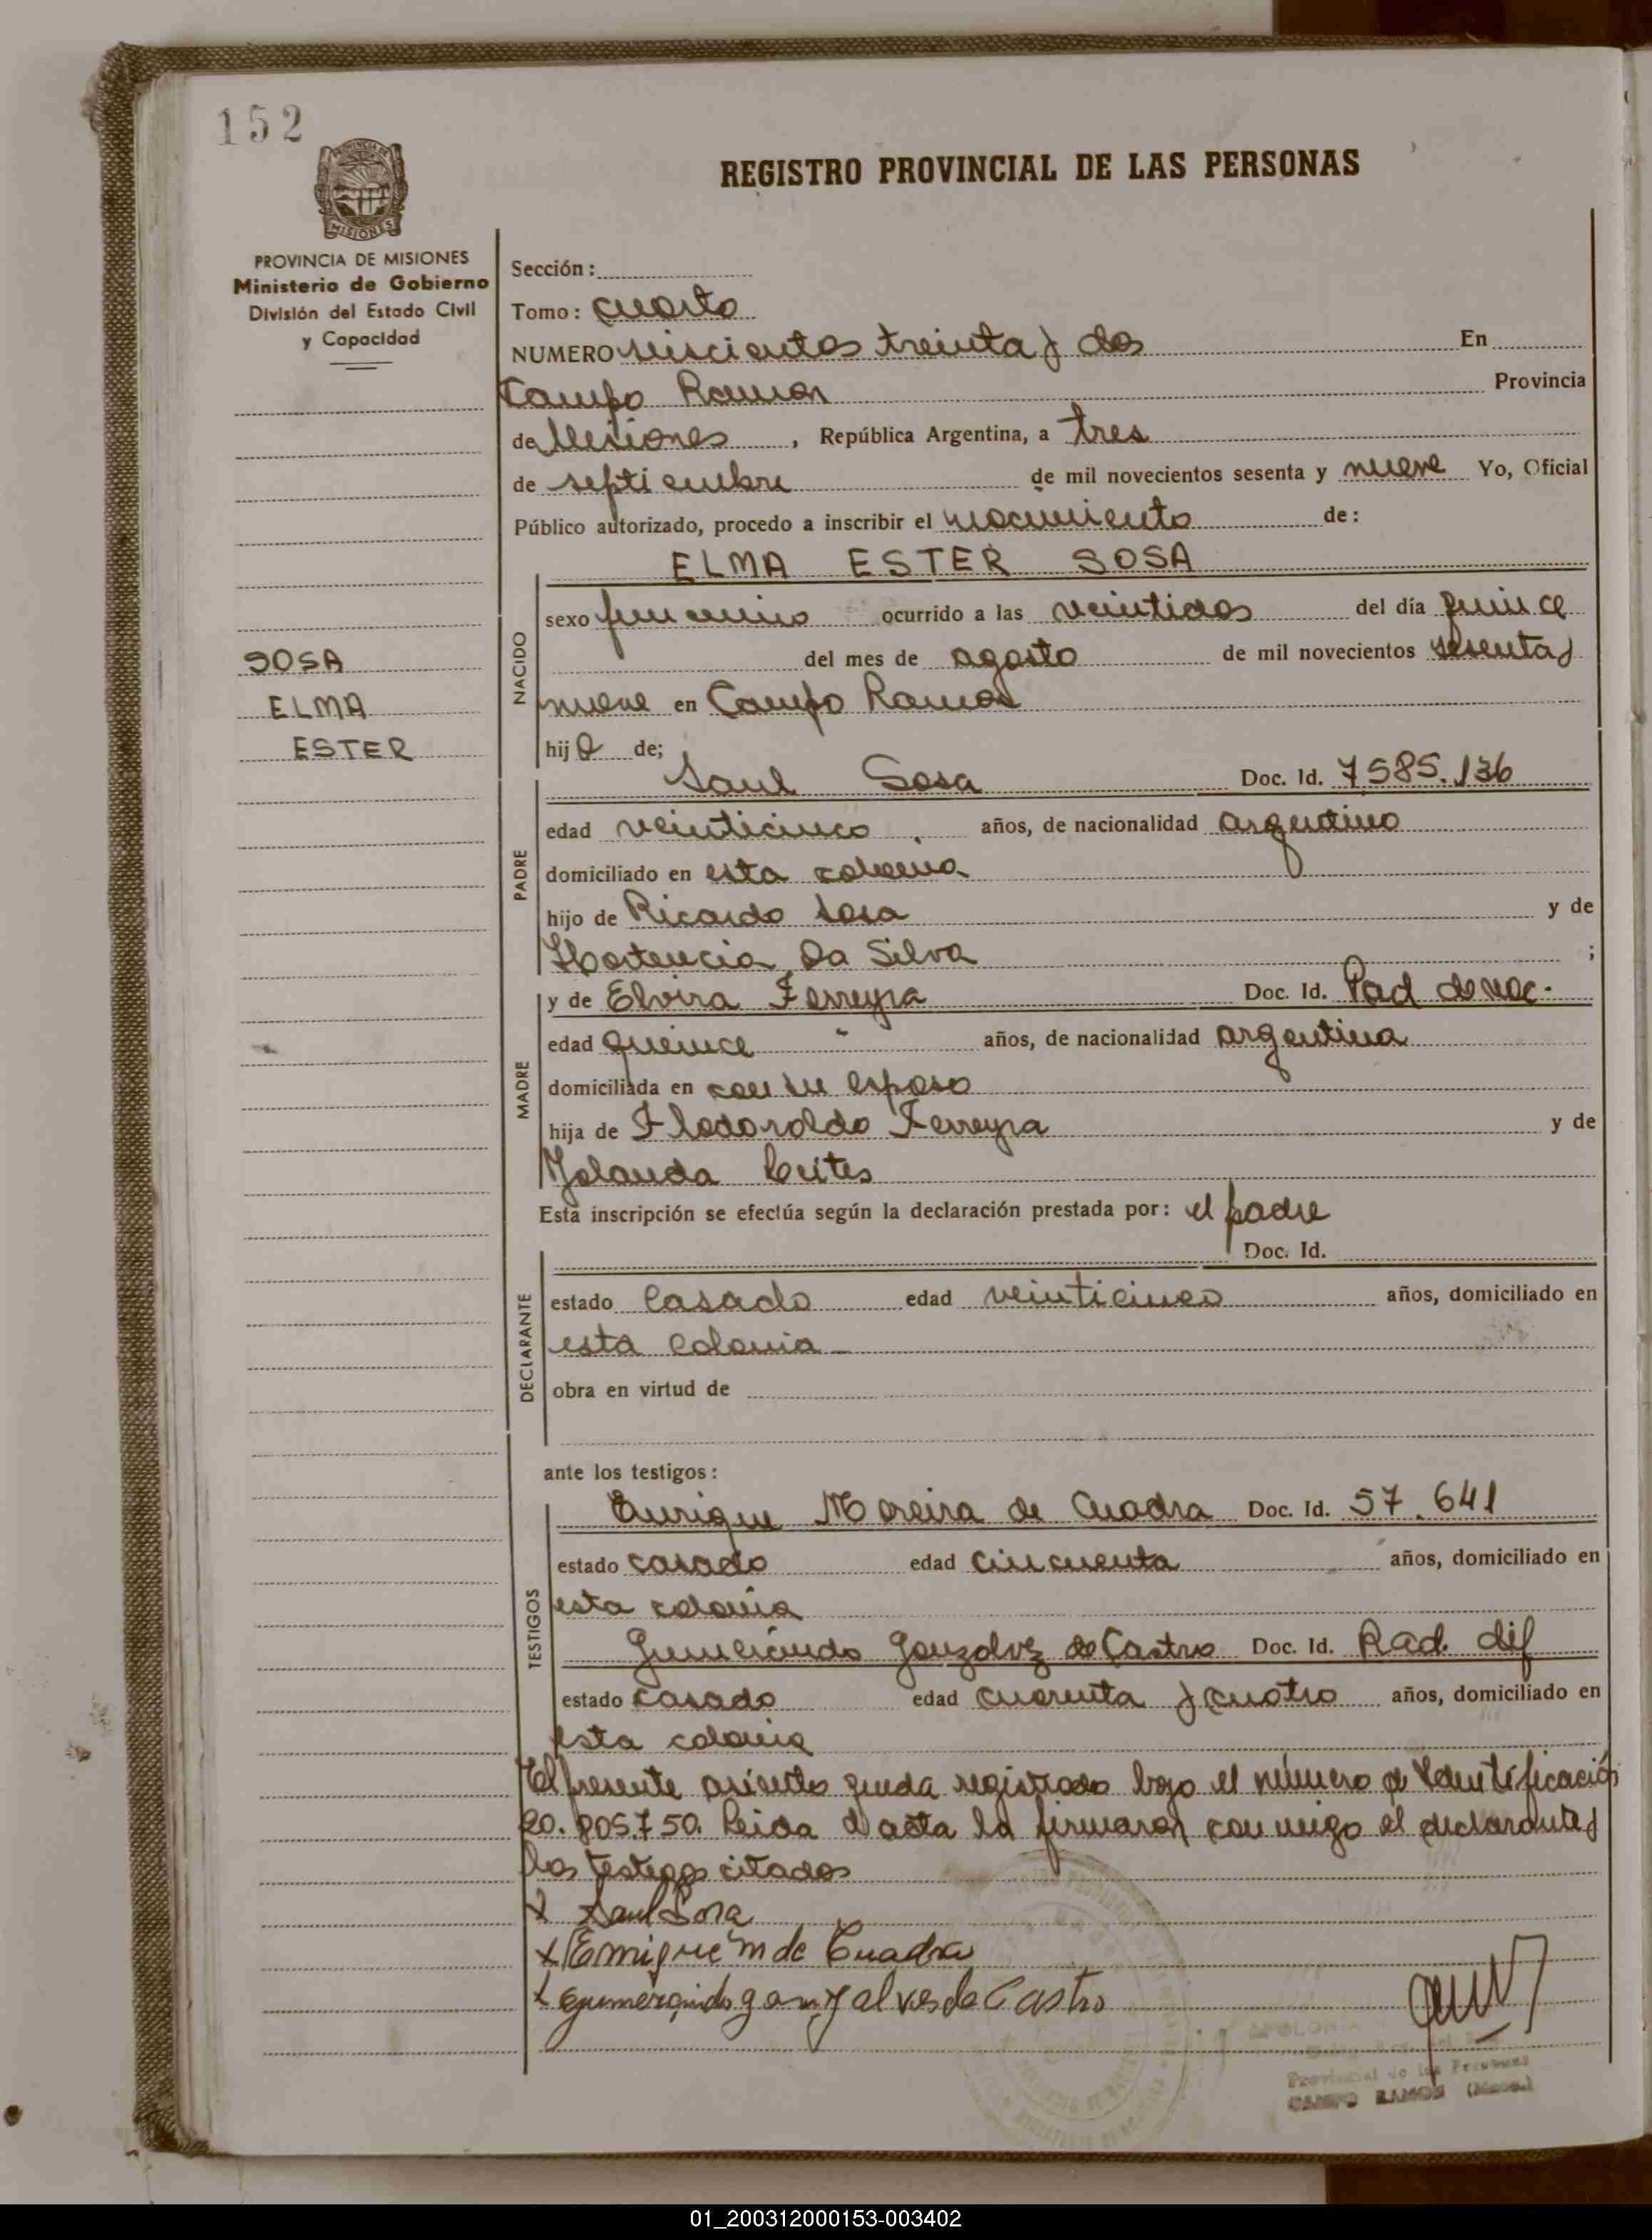 152
REGISTRO PROVINCIAL DE LAS PERSONAS
PROVINCIA DE MISIONES
MISIONES
PROVINCIA DE MISIONES
Ministerio de Gobierno
División del Estado Civil
y Capacidad
SOSA
ELMA
ESTER
Sección:
Tomo: cuarto
NUMERO seiscientos treinta y dos En
Campo Ramon Provincia
de Misiones, República Argentina, a tres
de septiembre de mil novecientos sesenta y nueve Yo, Oficial
Público autorizado, procedo a inscribir el nacimiento de:
ELMA ESTER SOSA
NACIDO
sexo femenino ocurrido a las veintidos del día quince
del mes de agosto de mil novecientos sesenta y
nueve en Campo Ramon
hija de;
PADRE
Saul Sosa Doc. Id. 7585.136
edad veinticinco años, de nacionalidad argentino
domiciliado en esta colonia
hijo de Ricardo Sosa y de
Hortencia Da Silva ;
MADRE
y de Elvira Ferreyra Doc. Id. Pad de nac.
edad queince años, de nacionalidad argentina
domiciliada en con su esposo
hija de Flodoroldo Ferreyra y de
Yolanda Leites
Esta inscripción se efectúa según la declaración prestada por: el padre
Doc. Id.
DECLARANTE
estado Casado edad veinticinco años, domiciliado en
esta colonia
obra en virtud de
ante los testigos:
TESTIGOS
Enrique Moreira de Cuadra Doc. Id. 57.641
estado casado edad cincuenta años, domiciliado en
esta colonia
Gumercindo Gonzalvez de Castro Doc. Id. Rad. dif
estado casado edad cuarenta y cuatro años, domiciliado en
esta colonia
El presente asiento queda registrado bajo el número de Identificación
20.805.750. Leida el acta la firmaron conmigo el declarante y
los testigos citados
x Saul Sosa
x Emigue m de Cuadra
x gumercindo gonzalves de Castro
Provincial de las Personas
CAMPO RAMON (Mnes.)
01_200312000153-003402